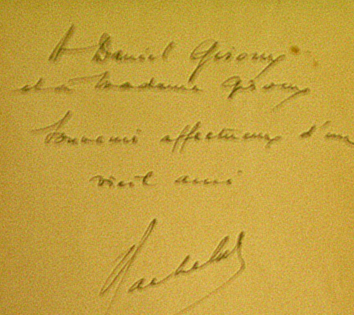 A Daniel Giroux
et à Madame Giroux
Souvenir affectueux d'un
vieil ami